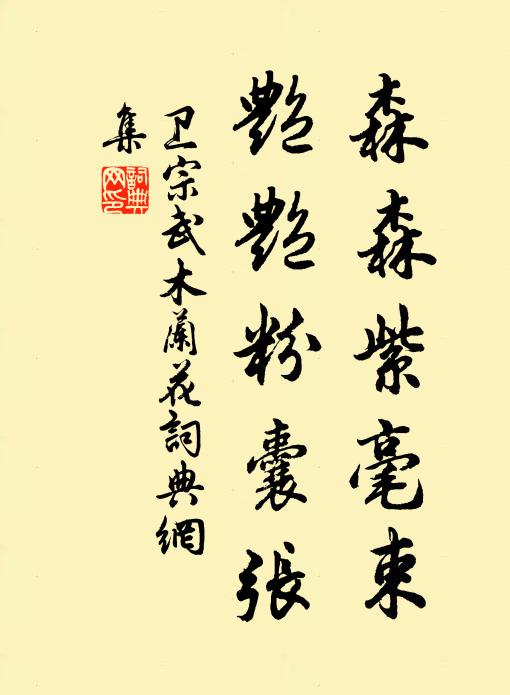 森森紫毫束
艷艷粉囊張
卫宗武木蘭花詞典網
集
詞典網印